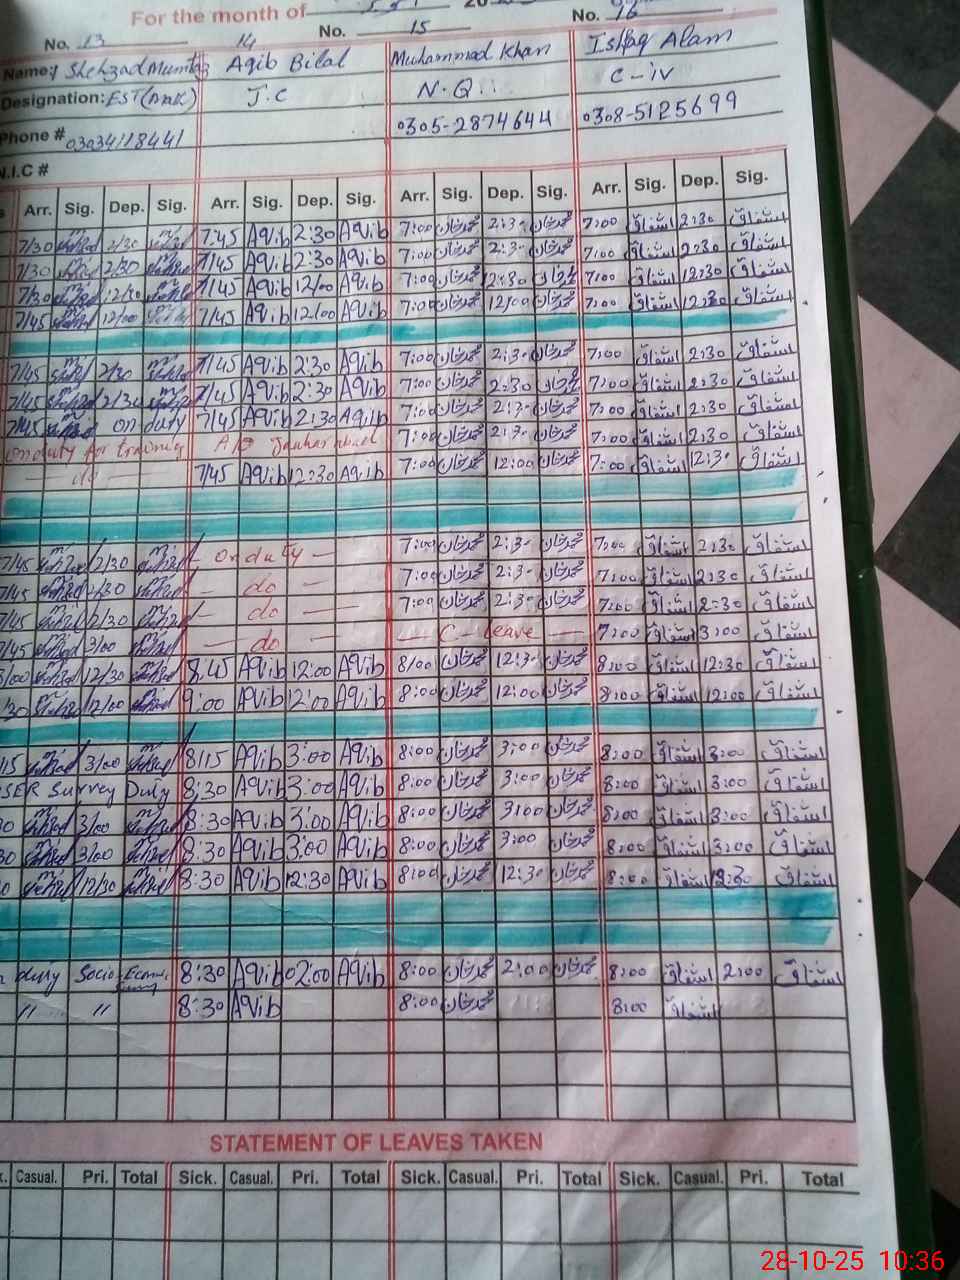 For the month of
No. 13 14 No. 15 No. 16
Name: Shehzad Mumtaz Aqib Bilal Muhammad Khan Ishfaq Alam
Designation: EST (J.C N.Q C-iv
Phone # 03034118441 0305-2874644 0308-5125699
N.I.C #
Arr. Sig. Dep. Sig. Arr. Sig. Dep. Sig. Arr. Sig. Dep. Sig. Arr. Sig. Dep. Sig.
7/30 2/30 7:45 Aqib 2:30 Aqib 7:00 محمدخان 2:30 محمدخان 7:00 اشفاق 2:30 اشفاق
7/30 2/30 7/45 Aqib 2:30 Aqib 7:00 محمدخان 2:30 محمدخان 7:00 اشفاق 2:30 اشفاق
7/30 12/30 7/45 Aqib 12/00 Aqib 7:00 محمدخان 12:30 محمدخان 7:00 اشفاق 12:30 اشفاق
7/45 12/00 7/45 Aqib 12/00 Aqib 7:00 محمدخان 12/00 محمدخان 7:00 اشفاق 12:30 اشفاق
7/45 2/30 7/45 Aqib 2:30 Aqib 7:00 محمدخان 2:30 محمدخان 7:00 اشفاق 2:30 اشفاق
7/45 2/30 7/45 Aqib 2:30 Aqib 7:00 محمدخان 2:30 محمدخان 7:00 اشفاق 2:30 اشفاق
7/45 on duty 7/45 Aqib 2:30 Aqib 7:00 محمدخان 2:30 محمدخان 7:00 اشفاق 2:30 اشفاق
on duty for training 7:00 محمدخان 2:30 محمدخان 7:00 اشفاق 2:30 اشفاق
— do — 7/45 Aqib 12:30 Aqib 7:00 محمدخان 12:00 محمدخان 7:00 اشفاق 12:30 اشفاق
7/45 2/30 - on duty - 7:00 محمدخان 2:30 محمدخان 7:00 اشفاق 2:30 اشفاق
7/45 2/30 - do - 7:00 محمدخان 2:30 محمدخان 7:00 اشفاق 2:30 اشفاق
7/45 2/30 - do - 7:00 محمدخان 2:30 محمدخان 7:00 اشفاق 2:30 اشفاق
7/45 3/00 - do - - C - leave - 7:00 اشفاق 3:00 اشفاق
8/00 12/30 8:45 Aqib 12:00 Aqib 8/00 محمدخان 12:30 محمدخان 8:00 اشفاق 12:30 اشفاق
/30 12/00 9:00 Aqib 12:00 Aqib 8:00 محمدخان 12:00 محمدخان 8:00 اشفاق 12:00 اشفاق
/15 3/00 8/15 Aqib 3:00 Aqib 8:00 محمدخان 3:00 محمدخان 8:00 اشفاق 3:00 اشفاق
SER Survey Duty 8:30 Aqib 3:00 Aqib 8:00 محمدخان 3:00 محمدخان 8:00 اشفاق 3:00 اشفاق
30 3/00 8:30 Aqib 3:00 Aqib 8:00 محمدخان 3/00 محمدخان 8:00 اشفاق 3:00 اشفاق
30 3/00 8:30 Aqib 3:00 Aqib 8:00 محمدخان 3:00 محمدخان 8:00 اشفاق 3:00 اشفاق
12/30 8:30 Aqib 12:30 Aqib 8:00 محمدخان 12:30 محمدخان 8:00 اشفاق 12:30 اشفاق
duty Socio-Econ 8:30 Aqib 02:00 Aqib 8:00 محمدخان 2:00 محمدخان 8:00 اشفاق 2:00 اشفاق
" " 8:30 Aqib 8:00 محمدخان 8:00 اشفاق
STATEMENT OF LEAVES TAKEN
Casual. Pri. Total Sick. Casual. Pri. Total Sick. Casual. Pri. Total Sick. Casual. Pri. Total
28-10-25 10:36